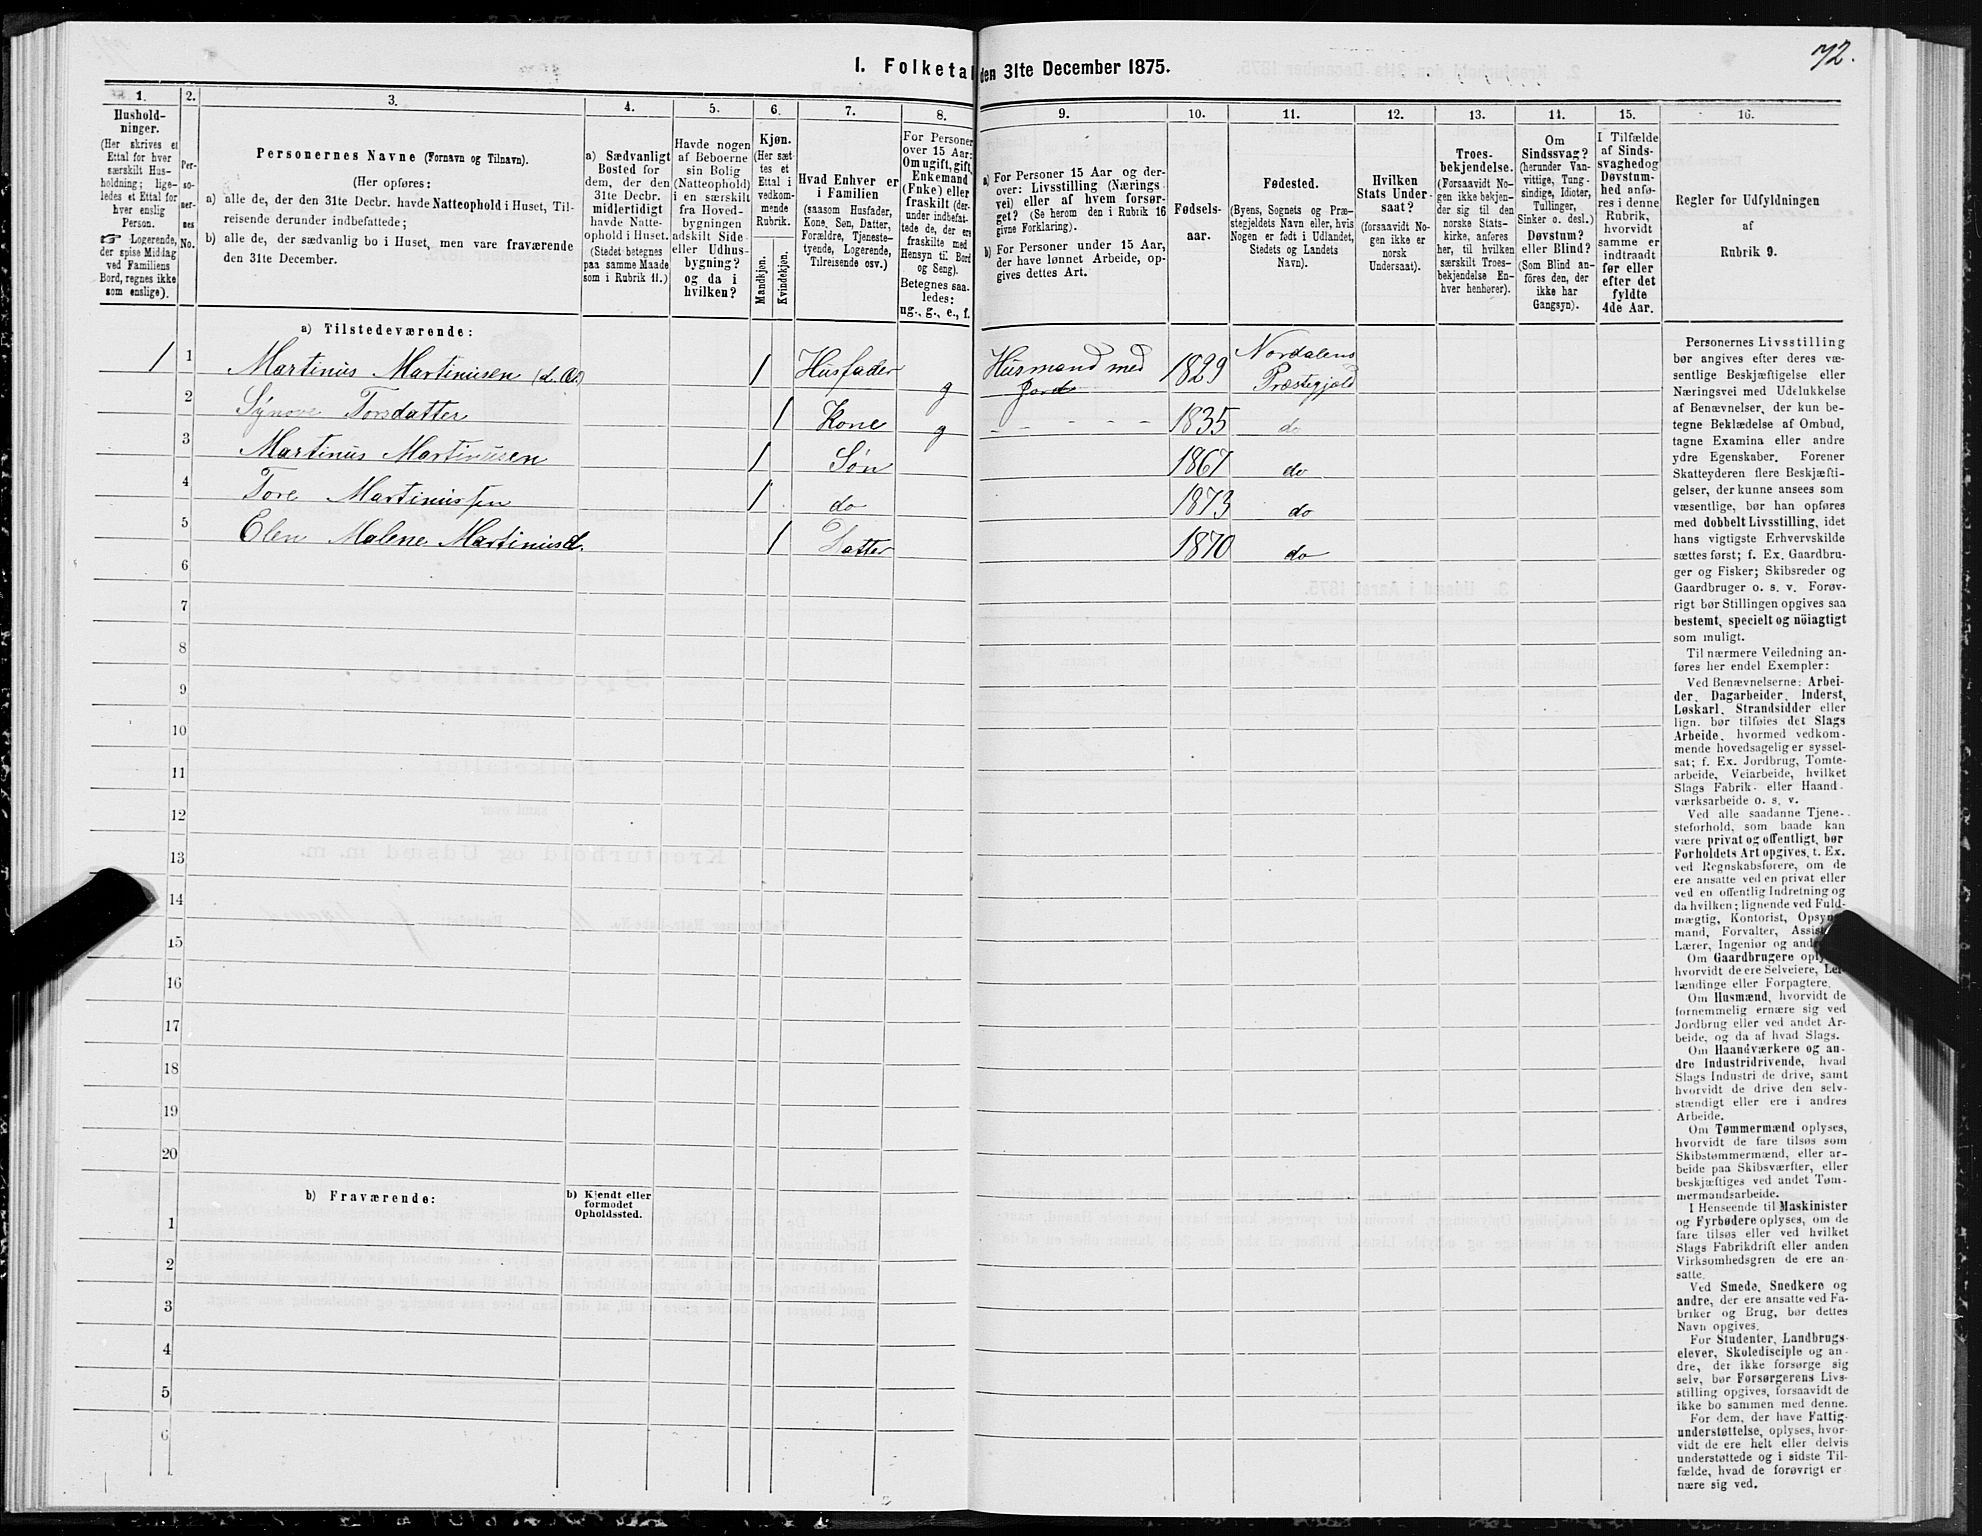 72.
I. Folketal den 31te December 1875.
1. 2. 3. 4. 5. 6. 7. 8. 9. 10. 11. 12. 13. 14. 15. 16.
Hushold-
ninger.
(Her skrives et
Ettal for hver
særskilt Hus-
holdning; lige-
ledes et Ettal for
hver enslig
Person.
☞ Logerende,
der spise Middag
ved Familiens
Bord, regnes ikke
som enslige).
Per-
so-
ner-
nes
No.
Personernes Navne (Fornavn og Tilnavn).
(Her opføres:
a) alle de, der den 31te Decbr. havde Natteophold i Huset, Til-
reisende derunder indbefattede;
b) alle de, der sædvanlig bo i Huset, men vare fraværende
den 31te December.
a) Sædvanligt
Bosted for
dem, der den
31te Decbr.
midlertidigt
havde Natte-
ophold i Huset.
(Stedet betegnes
paa samme Maade
som i Rubrik 11.)
Havde nogen
af Beboerne
sin Bolig
(Natteophold)
i en særskilt
fra Hoved-
bygningen
adskilt Side-
eller Udhus-
bygning?
og da i
hvilken?
Kjøn.
(Her sæt-
tes et
Ettal i
vedkom-
mende
Rubrik.
Mandkjøn.
Kvindekjøn.
Hvad Enhver er
i Familien
(saasom Husfader,
Kone, Søn, Datter,
Forældre, Tjeneste-
tyende, Logerende,
Tilreisende osv.)
For Personer
over 15 Aar:
Om ugift, gift,
Enkemand
(Enke) eller
fraskilt (der-
under indbefat-
tede de, der ere
fraskilte med
Hensyn til Bord
og Seng).
Betegnes saa-
ledes:
ug., g., e., f.
a) For Personer 15 Aar og der-
over: Livsstilling (Nærings-
vei) eller af hvem forsør-
get? (Se herom den i Rubrik 16
givne Forklaring).
b) For Personer under 15 Aar,
der have lønnet Arbeide, op-
gives dettes Art.
Fødsels-
aar.
Fødested.
(Byens, Sognets og Præ-
stegjeldets Navn eller, hvis
Nogen er født i Udlandet,
Stedets og Landets
Navn).
Hvilken
Stats Under-
saat?
(forsaavidt No-
gen ikke er
norsk
Undersaat).
Troes-
bekjendelse.
(Forsaavidt No-
gen ikke bekjen-
der sig til den
norske Stats-
kirke, anføres
her, til hvilken
særskilt Troes-
bekjendelse En-
hver henhører).
Om
Sindssvag?
(herunder Van-
vittige, Tung-
sindige, Idioter,
Tullinger,
Sinker o. desl.)
Døvstum?
eller Blind?
(Som Blind an-
føres den, der
ikke har
Gangsyn).
I Tilfælde
af Sinds-
svaghed og
Døvstum-
hed anfø-
res i denne
Rubrik,
hvorvidt
samme er
indtraadt
før eller
efter det
fyldte
4de Aar.
Regler for Udfyldningen
af
Rubrik 9.
a) Tilstedeværende:
1 1 Martinus Martinusen 1 Husfader g Husmand med Jord 1829 Nordalens Præstegjeld
2 Synove Torsdatter 1 Kone g - - - - - 1835 do
3 Martinus Martinusen 1 Søn 1867 do
4 Tore Martinussen 1 do 1873 do
5 Elen Malene Martinusd. 1 Datter 1870 do
6
7
8
9
10
11
12
13
14
15
16
17
18
19
20
b) Fraværende:
b) Kjendt eller
formodet
Opholdssted.
1
2
3
4
5
6
Personernes Livsstilling
bør angives efter deres væ-
sentlige Beskjæftigelse eller
Næringsvei med Udelukkelse
af Benævnelser, der kun be-
tegne Beklædelse af Ombud,
tagne Examina eller andre
ydre Egenskaber. Forener
Skatteyderen flere Beskjæfti-
gelser, der kunne ansees som
væsentlige, bør han opføres
med dobbelt Livsstilling, idet
hans vigtigste Erhvervskilde
sættes først; f. Ex. Gaardbru-
ger og Fisker; Skibsreder og
Gaardbruger o. s. v. Forøv-
rigt bør Stillingen opgives saa
bestemt, specielt og nöiagtigt
som muligt.
Til nærmere Veiledning an-
føres her endel Exempler:
Ved Benævnelserne: Arbei-
der, Dagarbeider, Inderst,
Løskarl, Strandsidder eller
lign. bør tilføies det Slags
Arbeide, hvormed vedkom-
mende hovedsagelig er syssel-
sat; f. Ex. Jordbrug, Tomte-
arbeide, Veiarbeide, hvilket
Slags Fabrik- eller Haand-
værksarbeide o. s. v.
Ved alle saadanne Tjene-
steforhold, som baade kan
være privat og offentligt, bør
Forholdets Art opgives, t. Ex.
ved Regnskabsførere, om de
ere ansatte ved en privat eller
ved en offentlig Indretning og
da hvilken; lignende ved Fuld-
mægtig, Kontorist,
mand, Forvalter,
Lærer, Ingeniør og
Om Gaardbrugere
hvorvidt de ere Selveiere, Lei-
lændinge eller Forpagtere.
Om Husmænd, hvorvidt de
fornemmelig ernære sig ved
Jordbrug eller ved andet Ar-
beide, og da af hvad Slags.
Om Haandværkere og an-
dre Industridrivende, hvad
Slags Industri de drive, samt
hvorvidt de drive den selv-
stændigt eller ere i andres
Arbeide.
Om Tømmermænd oplyses,
hvorvidt de fare tilsøs som
Skibstømmermænd, eller ar-
beide paa Skibsværfter, eller
beskjæftiges ved andet Tøm-
mermandsarbeide.
I Henseende til Maskinister
og Fyrbødere oplyses, om de
fare tilsøs eller ved hvilket
Slags Fabrikdrift eller anden
Virksomhedsgren de ere an-
satte.
Ved Smede, Snedkere og
andre, der ere ansatte ved Fa-
briker og Brug, bør dettes
Navn opgives.
For Studenter, Landbrugs-
elever, Skoledisciple og an-
dre, der ikke forsørge sig
selv, bør Forsørgerens Livs-
stilling opgives, forsaavidt de
ikke bo sammen med denne.
For dem, der have Fattig-
understøttelse, oplyses, hvor-
vidt de ere helt eller delvis
understøttede og i sidste Til-
fælde, hvad de forøvrigt er-
nære sig ved.